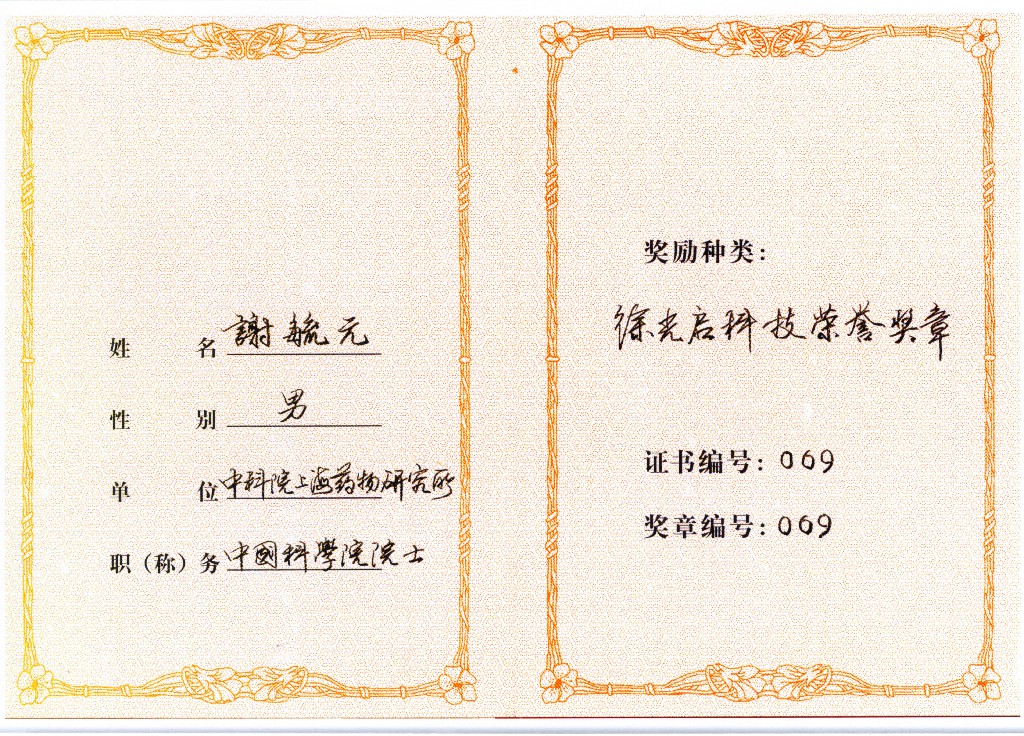 姓名 謝毓元
性别 男
单位 中科院上海药物研究所
职（称）务 中國科學院院士
奖励种类：
徐光启科技荣誉奖章
证书编号：069
奖章编号：069